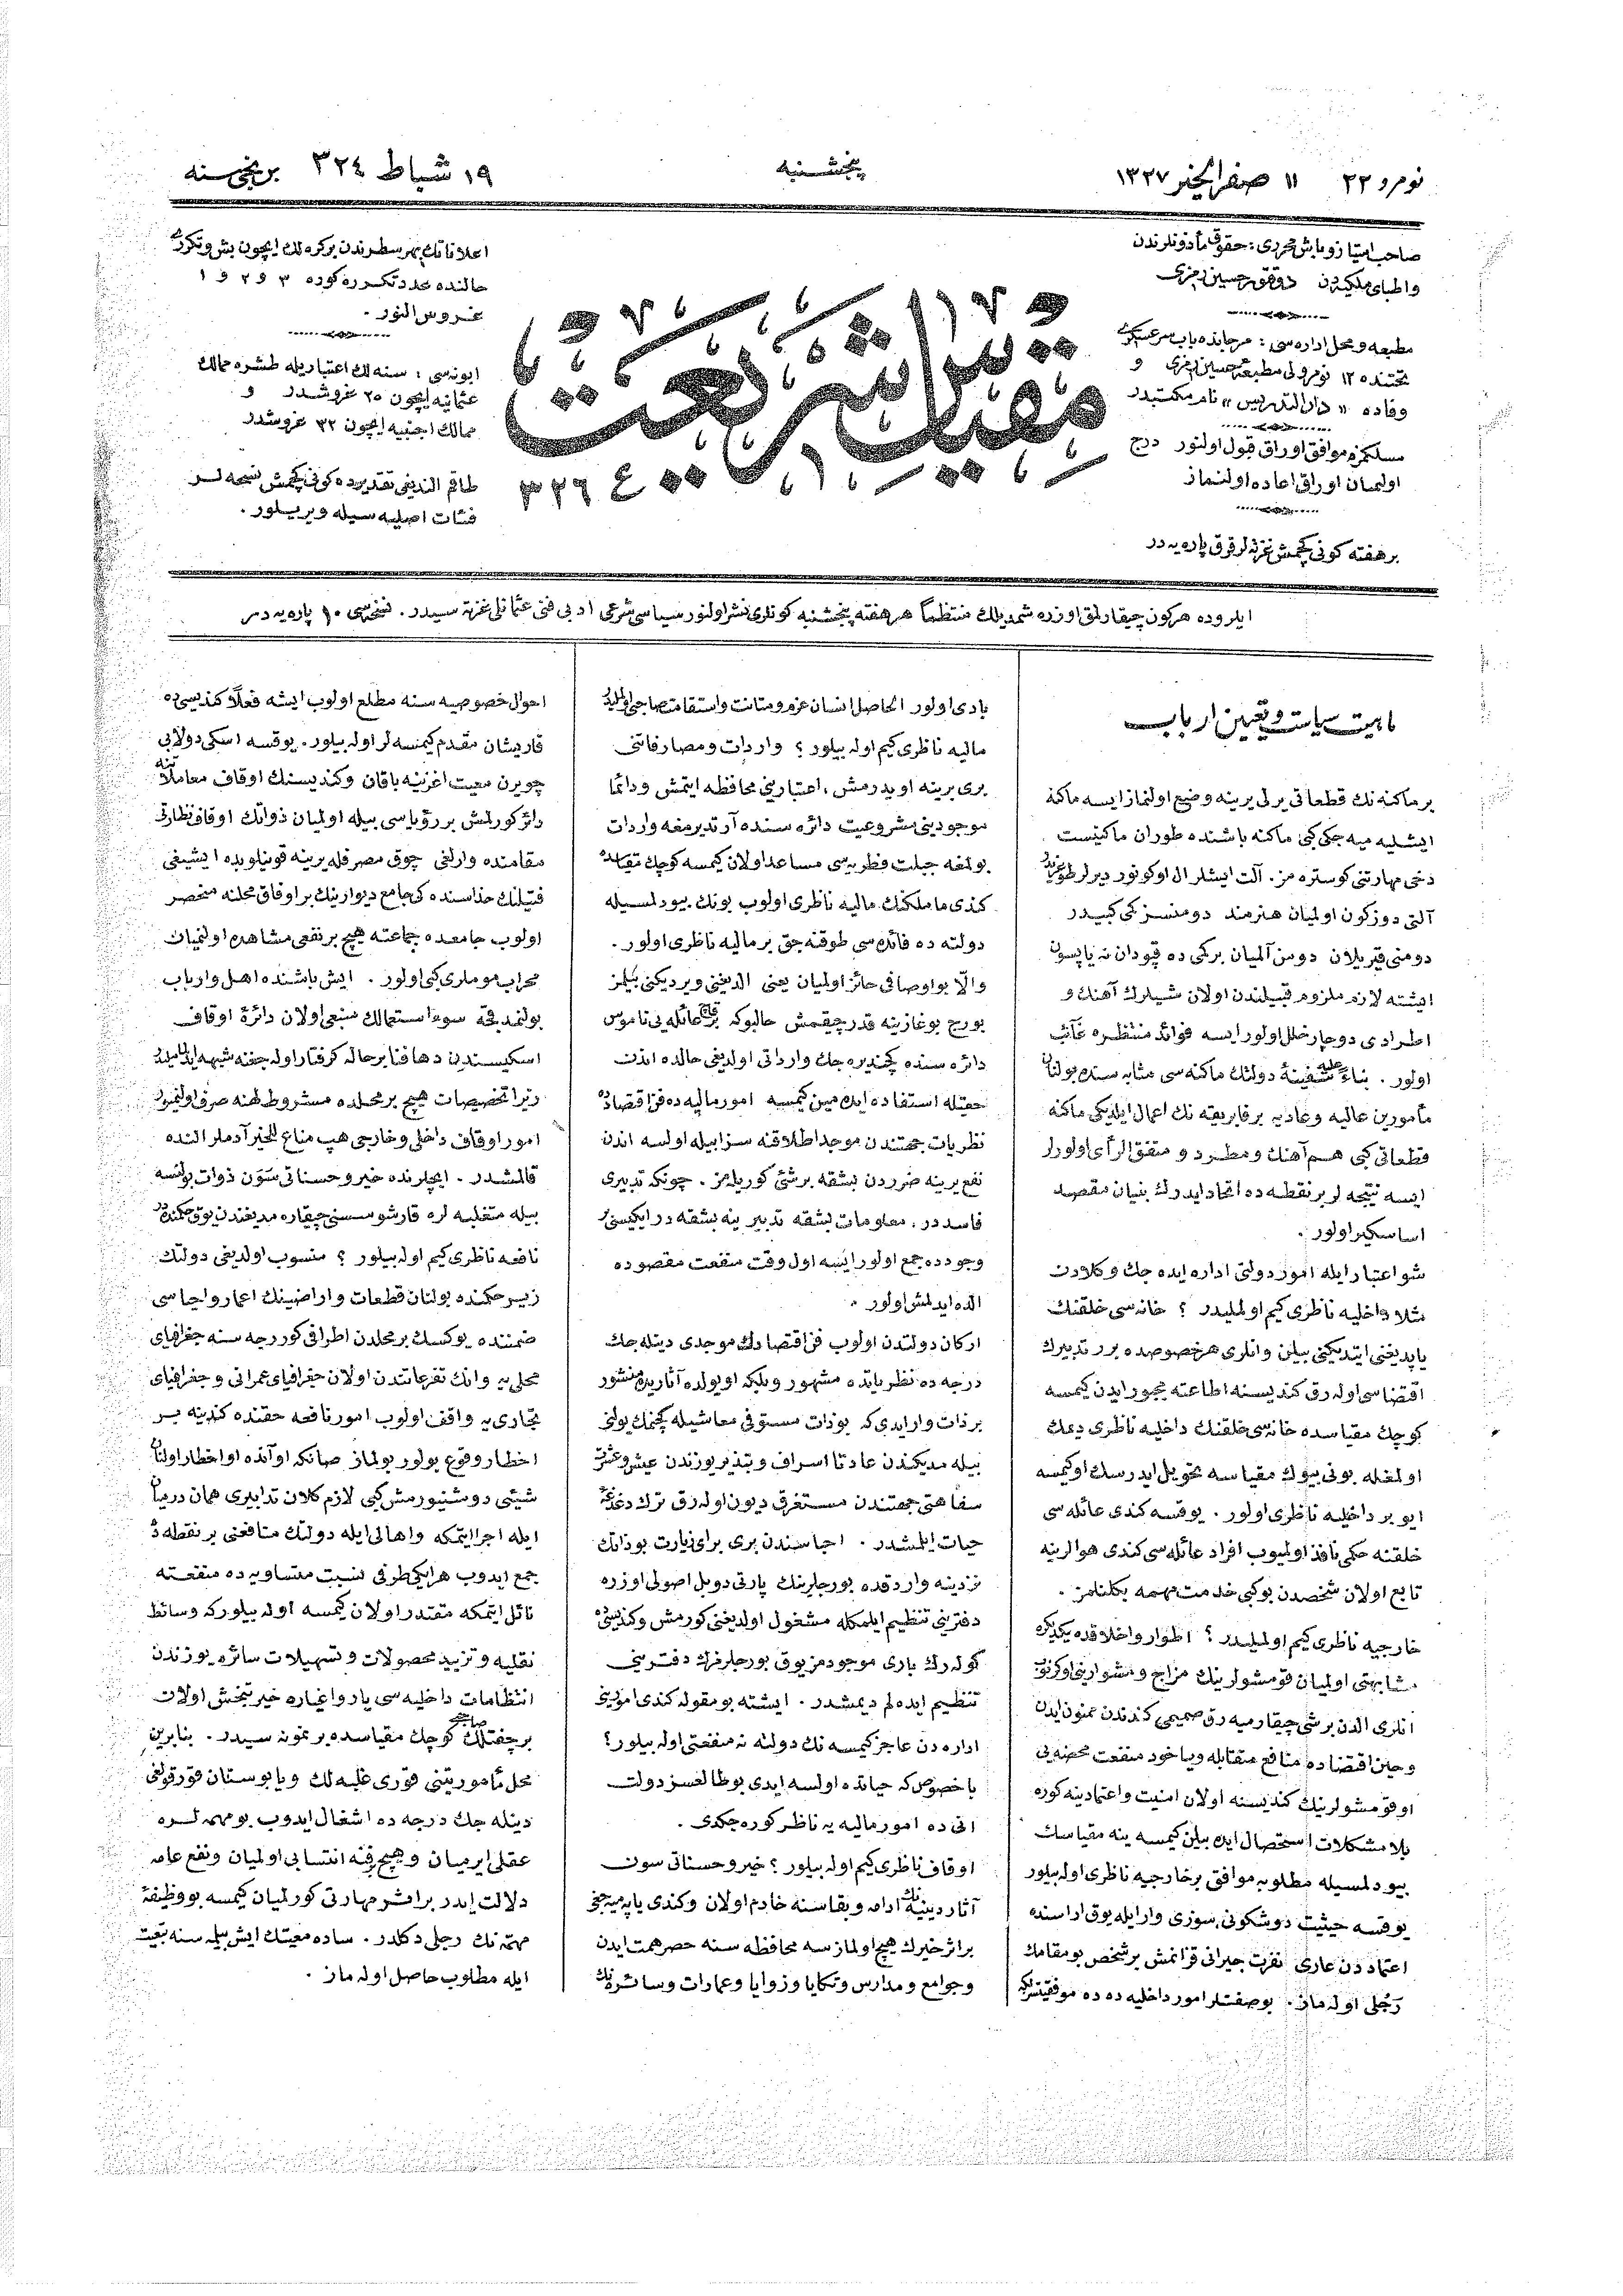 نومرو ٢٢
١١ صفر الخير ١٣٢٧
پنجشنبه
١٩ شباط ٣٢٤
برنجی سنه
صاحب امتياز و باش محرری : حقوق مأذونلرندن
و اطبای ملكيه‌دن دوقتور حسين رمزی
مطبعه و محل اداره‌سی : مرجانده باب سرعسكری
تحتنده ١٢ نومرولی مطبعهٔ حسين رمزی و
وفاده «دار التدريس» نام مكتبدر
مسلكمزه موافق اوراق قبول اولنور درج
اولنميان اوراق اعاده اولنماز
بر هفته كونی كچمش غزته‌لر قرق پاره‌يه در
مقياس شريعت
٣٢٦
اعلاناتك بهر سطرندن بر كره‌لك ايچون بش و تكرری
حالنده عدد تكرره كوره ٣ و ٢ و ١
غروش النور .
ابونه‌سی : سنه‌لك اعتباريله طشره ممالك
عثمانيه ايچون ٢٥ غروشدر و
ممالك اجنبيه ايچون ٣٢ غروشدر
طاقم النديغی تقديرده كونی كچمش نسخه‌لر
فئات اصليه سيله ويريلور .
ايلروده هركون چيقارلمق اوزره شمديلك منتظماً هر هفته پنجشنبه كونلری نشر اولنور سياسی شرعی ادبی فنی عثمانلی غزته سيدر . نسخه‌سی ١٠ پاره‌يه در
ماهيت سياست و تعيين ارباب
بر ماكنه نك قطعاتی يرلی يرينه وضع اولنماز ايسه ماكنه
ايشليه ميه جكی كبی ماكنه باشنده طوران ماكينست
دخی مهارتنی كوستره مز . آلت ايشلر ال اوكونور ديرلر
آلتی دوزكون اولميان هنرمند دومنسز كمی كبيدر
دومنی قيريلان دومن آلميان بر كمی ده قپودان نه ياپسون
ايشته لازم ملزوم قبيلندن اولان شيلرك آهنك و
اطرادی دوچار خلل اولور ايسه فوائد منتظره غائب
اولور . بناءً عليه سفينهٔ دولتك ماكنه سی مثابه سنده بولنان
مأمورين عاليه و عاديه بر فابريقه نك اعمال ايلديكی ماكنه
قطعاتی كبی هم آهنك و مطرد و متفق الرأی اولورلر
ايسه نتيجه لر بر نقطه ده اتحاد ايدرك بنيان مقصد
اساسكير اولور .
شو اعتبار ايله امور دولتی اداره ايده جك وكلادن
مثلا داخليه ناظری كيم اولمليدر ؟ خانه سی خلقنك
ياپديغنی ايتديكنی بيلن و انلری هر خصوصده برر تدبيرك
اقتضاسی اوله رق كنديسنه اطاعته مجبور ايدن كيمسه
كوچك مقياسده خانه سی خلقنك داخليه ناظری ديمك
اولمغله بونی بيوك مقياسه تحويل ايدرسك او كيمسه
ايو بر داخليه ناظری اولور . يوقسه كندی عائله سی
خلقنه حكمی نافذ اولميوب افراد عائله سی كندی هوالرينه
تابع اولان شخصدن بو كبی خدمت مهمه بكلنلمز .
خارجيه ناظری كيم اولمليدر ؟ اطوار و اخلاقده يكديكره
مشابهتی اولميان قومشولرينك مزاج و مشوارينی اوكرنوب
انلری الدن بر شی چيقارميه رق صميمی كندندن ممنون ايدن
و حين اقتضاده منافع متقابله ويا خود منفعت محضه يی
او قومشولرينك كنديسنه اولان امنيت و اعتمادينه كوره
بلا مشكلات استحصال ايده بيلن كيمسه ينه مقياسك
بيودلمسيله مطلوبه موافق بر خارجيه ناظری اوله بيلور
يوقسه حيثيت دوشكونی سوزی وار ايله يوق اراسنده
اعتماددن عاری نفرت جيرانی قزانمش بر شخص بو مقامك
رَجُلی اوله ماز . بو صفتلر امور داخليه ده ده موفقيتسزلكه
بادی اولور الحاصل انسان عزم و متانت و استقامت صاحبی اولمليدر
ماليه ناظری كيم اوله بيلور ؟ واردات و مصارفاتنی
بری برينه اويدرمش ، اعتبارينی محافظه ايتمش و دائما
موجودينی مشروعيت دائره سنده آرتديرمغه واردات
بولمغه جبلت فطريه سی مساعد اولان كيمسه كوچك مقياسده
كندی ماملكنك ماليه ناظری اولوب بونك بيودلمسيله
دولته ده فائده سی طوقنه جق بر ماليه ناظری اولور .
والّا بو اوصافی حائز اولميان يعنی الديغنی ويرديكنی بيلمز
بورج بوغازينه قدر چيقمش حالبوكه بر قاچ عائله يی ناموس
دائره سنده كچنديره جك وارداتی اولديغی حالده اندن
حقيله استفاده ايده مين كيمسه امور ماليه ده فن اقتصادده
نظريات جهتندن موجد اطلاقنه سزا بيله اولسه اندن
نفع يرينه ضرردن بشقه برشئ كوريله مز . چونكه تدبيری
فاسددر ، معلومات بشقه تدبير ينه بشقه در ايكيسی بر
وجودده جمع اولور ايسه اول وقت منفعت مقصوده
الده ايدلمش اولور .
اركان دولتدن اولوب فن اقتصادك موجدی دينله جك
درجه ده نظرياتده مشهور و بلكه او يولده آثاريده منتشر
بر ذات وار ايدی كه بو ذات مستوفی معاشيله كچنمك يولنی
بيله مديكندن عادتا اسراف و تبذير يوزندن عيش و عشرت
سفاهتی جهتندن مستغرق ديون اوله رق ترك دغدغهٔ
حيات ايلمشدر . احباسندن بری برای زيارت بو ذاتك
نزدينه واردقده بورجلرينك پارتی دوبل اصولی اوزره
دفترينی تنظيم ايلمكله مشغول اولديغنی كورمش و كنديسی ده
كوله رك باری موجودمز يوق بورجلرمزك دفترينی
تنظيم ايده لم ديمشدر . ايشته بو مقوله كندی امورينی
اداره دن عاجز كيمسه نك دولته نه منفعتی اوله بيلور ؟
با خصوص كه حياتده اولسه ايدی بو طالعسز دولت
انی ده امور ماليه يه ناظر كوره جكدی .
اوقاف ناظری كيم اوله بيلور ؟ خير و حسناتی سون
آثار دينيه نك ادامه و بقاسنه خادم اولان و كندی ياپه ميه جغی
بر اثر خيرك هيچ اولمازسه محافظه سنه حصر همت ايدن
و جوامع و مدارس و تكايا و زوايا و عمارات و سائره نك
احوال خصوصيه سنه مطلع اولوب ايشه فعلاً كنديسی ده
قاريشان مقدم كيمسه لر اوله بيلور . يوقسه اسكی دولابی
چويرن معيت اغزينه باقان و كنديسنك اوقاف معاملاتنه
دائر كورلمش بر رؤياسی بيله اولميان ذواتك اوقاف نظارتی
مقامنده وارلغی چوق مصرفله يرينه قونيلوبده ايشيغی
فتيلنك حذاسنده كی جامع ديوارينك بر اوفاق محلنه منحصر
اولوب جامعده جماعته هيچ بر نفعی مشاهده اولنميان
محراب موملری كبی اولور . ايش باشنده اهل و ارباب
بولنمدقجه سوء استعمالك منبعی اولان دائرهٔ اوقاف
اسكيسندن دها فنا بر حاله كرفتار اوله جغنه شبهه ايدلمامليدر
زيرا تخصيصات هيچ بر محلده مشروط لهنه صرف اولنميور
امور اوقاف داخلی و خارجی هپ مناع للخير آدملر النده
قالمشدر . ايچلرنده خير و حسناتی سَوَن ذوات بولنسه
بيله متغلبه لره قارشو سسنی چيقاره مديغندن يوق حكمنده در
نافعه ناظری كيم اوله بيلور ؟ منسوب اولديغی دولتك
زير حكمنده بولنان قطعات و اراضينك اعمار و احياسی
ضمننده يوكسك بر محلدن اطرافی كورر جه سنه جغرافيای
محلی يه و انك تفرعاتندن اولان جغرافيای عمرانی و جغرافيای
تجاری يه واقف اولوب امور نافعه حقنده كندينه بر
اخطار وقوع بولور بولماز صانكه او آنده او اخطار اولنان
شيئی دوشنيورمش كبی لازم كلان تدابيری همان درميان
ايله اجرا ايتمكه و اهالی ايله دولتك منافعنی بر نقطه ده
جمع ايدوب هر ايكی طرفی نسبت متساويه ده منفعته
نائل ايتمكه مقتدر اولان كيمسه اوله بيلوركه وسائط
نقليه و تزييد محصولات و تسهيلات سائره يوزندن
انتظامات داخليه سی يار و اغياره خير تبخش اولان
بر چفتلك صاحبی كوچك مقياسده بر نمونه سيدر . بنابرين
محل مأموريتنی قوری غلبه لك ويا بوستان قورقولغی
دينله جك درجه ده اشغال ايدوب بو مهمه لره
عقلی ايرميان و هيچ بر فنه انتسابی اولميان و نفع عامه
دلالت ايدر بر اثر مهارتی كورلميان كيمسه بو وظيفهٔ
مهمه نك رجلی دكلدر . ساده معيتك ايش بيلمسنه تبعيت
ايله مطلوب حاصل اوله ماز .